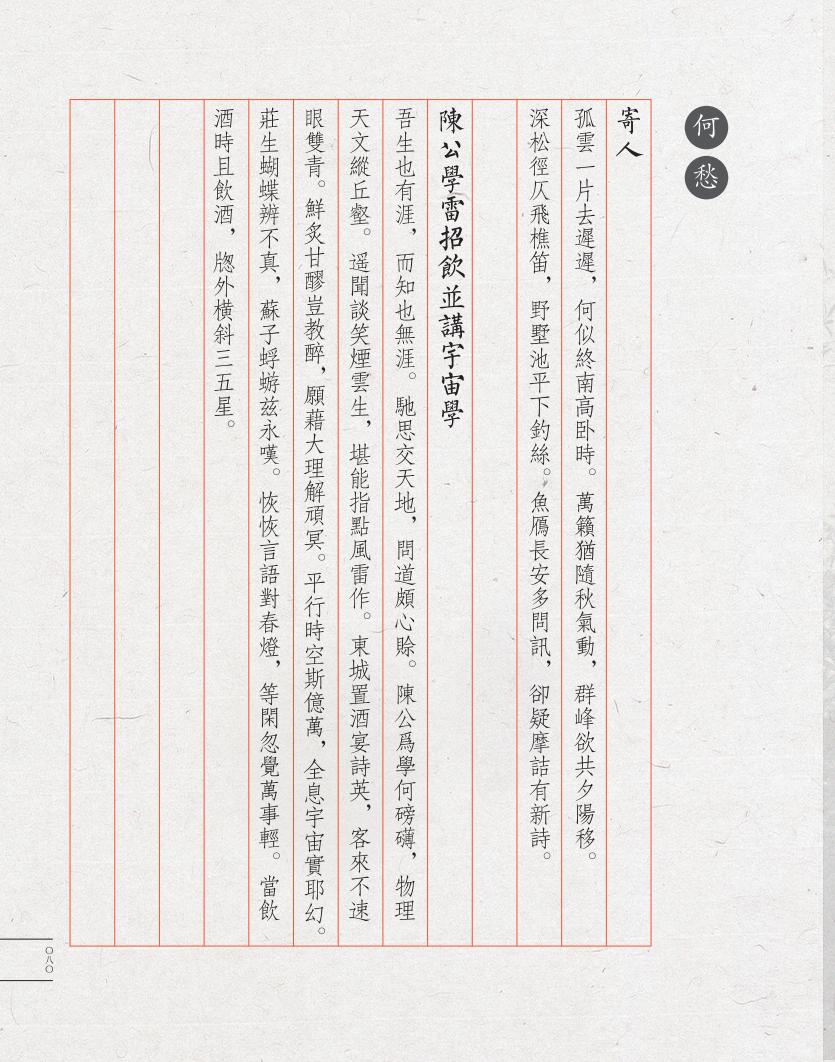 何愁
寄人
孤雲一片去遲遲，何似終南高卧時。萬籟猶隨秋氣動，群峰欲共夕陽移。
深松徑仄飛樵笛，野墅池平下釣絲。魚鴈長安多問訊，卻疑摩詰有新詩。
陳公學雷招飲並講宇宙學
吾生也有涯，而知也無涯。馳思交天地，問道頗心賒。陳公爲學何磅礴，物理
天文縱丘壑。遥聞談笑煙雲生，堪能指點風雷作。東城置酒宴詩英，客來不速
眼雙青。鮮炙甘醪豈教醉，願藉大理解頑冥。平行時空斯億萬，全息宇宙實耶幻。
莊生蝴蝶辨不真，蘇子蜉蝣兹永嘆。恢恢言語對春燈，等閑忽覺萬事輕。當飲
酒時且飲酒，牎外橫斜三五星。
〇八〇